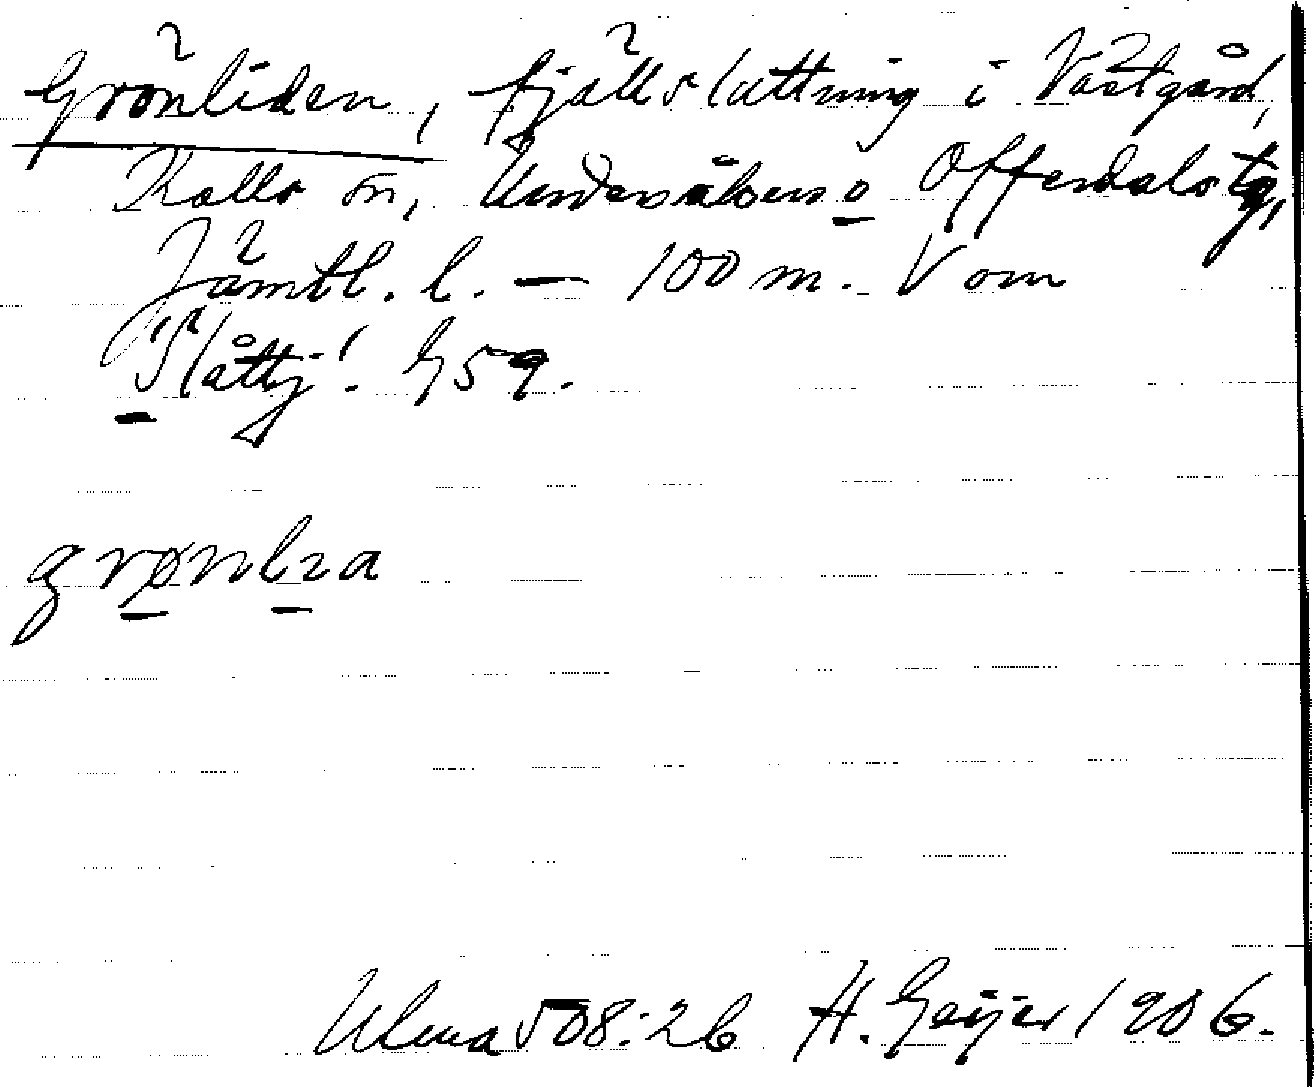 Grönliden, fjällslåttning i Västgård,
Kalls sn, Undersåkers o Offerdals tg,
Jämtl. l. — 100 m. V om
"Slåttj". G 59.
grønlıa
Ulma 508:26 H. Geijer 1906.